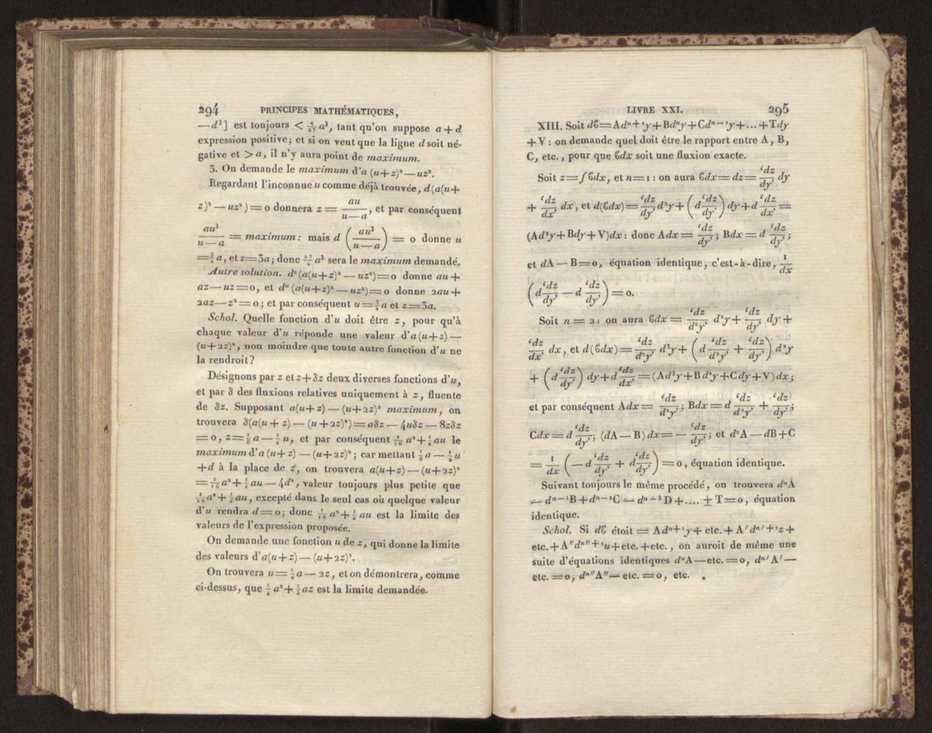 294 PRINCIPES MATHÉMATIQUES,
— d³] est toujours < 4/27 a³, tant qu'on suppose a + d
expression positive; et si on veut que la ligne d soit né-
gative et > a, il n'y aura point de maximum.
3. On demande le maximum d'a (u+z)² — uz².
Regardant l'inconnue u comme déjà trouvée, d(a(u+
z)² — uz²) = o donnera z = au/(u—a), et par conséquent
au²/(u—a) = maximum: mais d (au²/(u—a)) = o donne u
a, et z=3a; donc a³ sera le maximum demandé.
Autre solution. d(a(u+z)² — uz²)=o donne au +
az — uz = o, et d (a(u+z)² — uz²)=o donne 2au +
2az — z² = o; et par conséquent u = a et z=3a.
Schol. Quelle fonction d'u doit être z, pour qu'à
chaque valeur d'u réponde une valeur d'a(u+z) —
(u+2z)², non moindre que toute autre fonction d'u ne
la rendroit?
Désignons par z et z+δz deux diverses fonctions d'u,
et par δ des fluxions relatives uniquement à z, fluente
de δz. Supposant a(u+z) — (u+2z)² maximum, on
trouvera δ(a(u + z) — (u+2z)²)=aδz — 4uδz — 8zδz
= o, z= 1/8 a — 1/2 u, et par conséquent 1/16 a² + 1/2 au le
maximum d'a (u+z) — (u+2z)²; car mettant 1/8 a — 1/2 u
+d à la place de z, on trouvera a(u+z) — (u+2z)²
= 1/16 a² + 1/2 au — 4d², valeur toujours plus petite que
1/16 a² + 1/2 au, excepté dans le seul cas où quelque valeur
d'u rendra d = o; donc 1/16 a² + 1/2 au est la limite des
valeurs de l'expression proposée.
On demande une fonction u de z, qui donne la limite
des valeurs d'a(u+z) — (u+2z)².
On trouvera u = 1/2 a — 2z, et on démontrera, comme
ci-dessus, que a² + az est la limite demandée.
LIVRE XXI. 295
XIII. Soit dϐ=Adⁿ⁺¹y+Bdⁿy+Cdⁿ⁻¹y+...+Tdy
+V : on demande quel doit être le rapport entre A, B,
C, etc., pour que ϐdx soit une fluxion exacte.
Soit z=∫ϐdx, et n=1 : on aura ϐdx=dz= ‘dz/dy dy
+ ‘dz/dx dx, et d(ϐdx)= ‘dz/dy d²y + (d ‘dz/dy) dy + d ‘dz/dx =
(Ad²y+Bdy+V)dx : donc Adx = ‘dz/dy; Bdx = d ‘dz/dy;
et dA — B = o, équation identique, c'est-à-dire, 1/dx
(d ‘dz/dy — d ‘dz/dy) = o.
Soit n = 2 : on aura ϐdx = ‘dz/d²y d²y + ‘dz/dy dy +
‘dz/dx dx, et d(ϐdx)= ‘dz/d²y d³y + (d ‘dz/d²y + ‘dz/dy) d²y
+ (d ‘dz/dy) dy+d ‘dz/dx =(Ad³y+Bd²y+Cdy+V)dx;
et par conséquent Adx = ‘dz/d²y; Bdx = d ‘dz/d²y + ‘dz/dy;
Cdx = d ‘dz/dy; (dA — B) dx = — ‘dz/dy; et d²A — dB + C
= 1/dx (— d ‘dz/dy + d ‘dz/dy) = o, équation identique.
Suivant toujours le même procédé, on trouvera dⁿA
— dⁿ⁻¹B + dⁿ⁻²C — dⁿ⁻³D + .... ± T = o, équation
identique.
Schol. Si dϐ étoit = Adⁿ⁺¹y + etc. + A′dⁿ′⁺¹z +
etc. + A″dⁿ″⁺¹u+etc. +etc., on auroit de même une
suite d'équations identiques dⁿA — etc. = o, dⁿ′A′ —
etc. = o, dⁿ″A″ — etc. = o, etc.